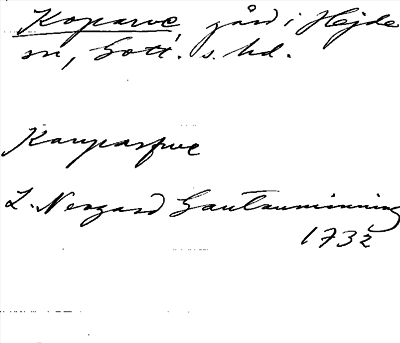 Koparve, gård i Hejde
sn, Gotl. s. hd.
Kauparfve
L. Neogard Gautauminning
1732